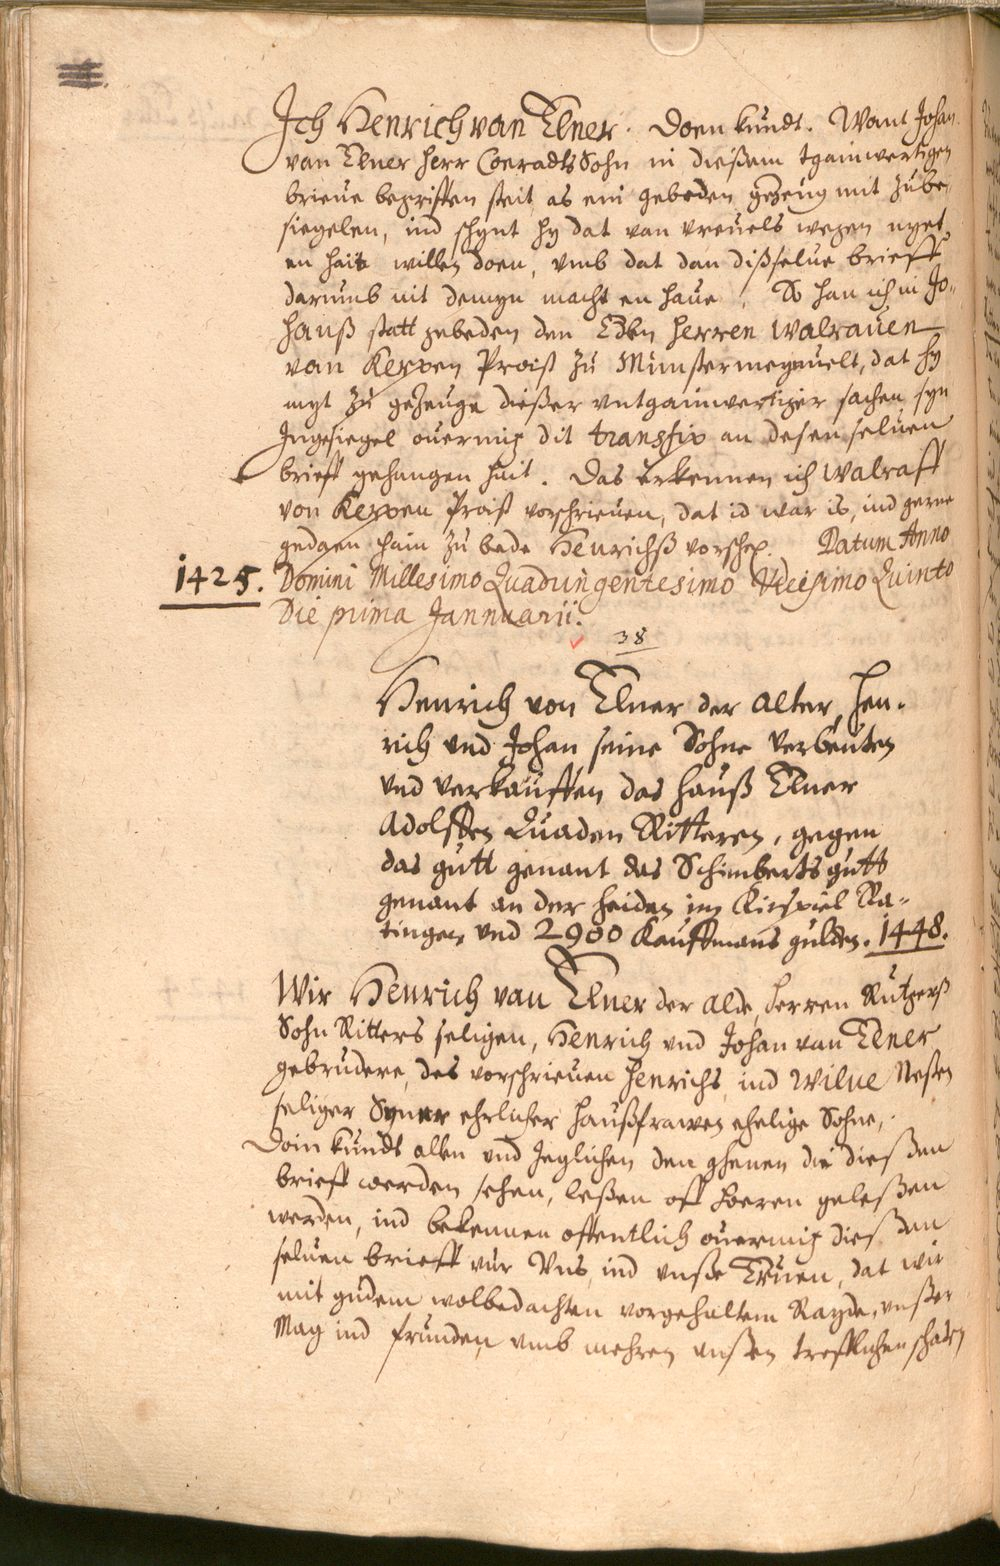 Ich Henrich van Elner. Doen kundt. Want Johan
van Elner Herr Coeradts Sohn in dießem tgainwertigen
brieue beschriften steit as ein gebeden gezeug mit zube-
siegelen, ind schynt hy dat van vreuels wegen nyet
en hait willen doen, vmb dat dan dißselue brieff
darumb nit demyn macht en haue. So han ich in Jo-
hanß statt gebeden den Edlen Herren Walrauen
van Kerpen Proist zu Munstermeynuelt, dat hy
myt zu gezeuge dießer vntgainwertiger sachen syn
Ingesiegel ouermig dit transfix an desen seluen
brieff gehangen hait. Das erkennen ich Walraff
von Kerpen Proist vorschrieuen, dat id war is, ind gerne
gedaen hain zu bede Henrichß vorschr. Datum Anno
1425. Domini Millesimo Quadringentesimo Vicesimo Quinto
Die prima Jannuarii.
38
Henrich von Elner der Alter, Hen-
rich vnd Johan seine Sohne verbeuten
vnd verkauffen das Hauß Elner
Adolffen Quaden Ritteren, gegen
das gutt genant das Schimberts gutt
genant an der Heiden im Kirspiel Ra-
tingen vnd 2900 Kauffmans gulden. 1448.
Wir Henrich van Elner der Alde, Herren Rutgerß
Sohn Ritters seligen, Henrich vnd Johan van Elner
gebrudere, des vorschrieuen Henrichs, ind Wilne Neßen
seliger Syner ehrlicher Haußfrawen ehelige Sohne,
Doin kundt allen vnd Jeglichen den ghenen die dießen
brieff werden sehen, leßen off hoeren geleßen
werden, ind bekennen offentlich ouermig dießen
seluen brieff vur Vns, ind vnße Eruen, dat wir
mit gudem wolbedachten vorgehaltem Rayde, vnßer
Mag ind frunden, vmb mehren vnßen trefflichen schaden